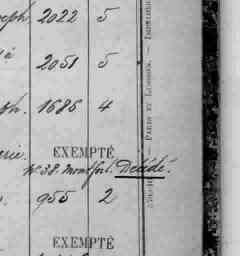 eph 2022 5
é 2051 5
ph. 1685 4
erie. EXEMPTÉ
No 38. Montfort. Décédé.
955 2
EXEMPTÉ
— PARIS ET LIMOGES. — IMPRIMERIE